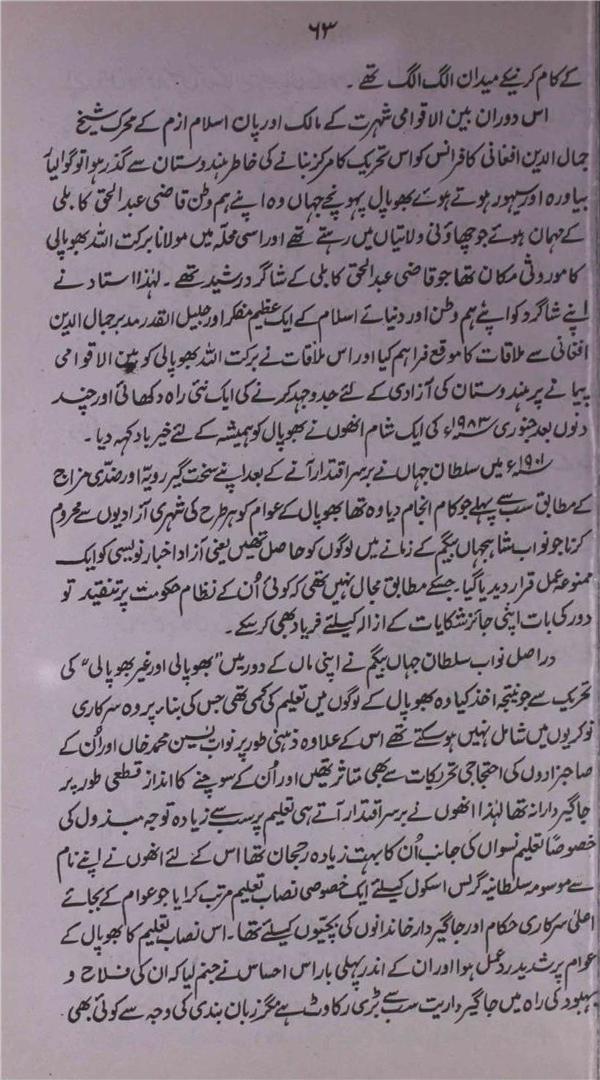 ۶۳
کے کام کرنیکے میدان الگ الگ تھے ۔
اس دوران بین الاقوامی شہرت کے مالک اور پان اسلام ازم کے محرک شیخ
جمال الدین افغانی کا فرانس کو اس تحریک کا مرکز بنانے کی خاطر ہندوستان سے گذر ہوا تو گوالیار
بیاورہ اور سیہور ہوتے ہوئے بھوپال پہونچے جہاں وہ اپنے ہم وطن قاضی عبدالحق کابلی
کے مہمان ہوئے جو چھاؤنی ولائتیاں میں رہتے تھے اور اسی محلہ میں مولانا برکت اللہ بھوپالی
کا موروثی مکان تھا جو قاضی عبدالحق کابلی کے شاگرد رشید تھے ۔ لہٰذا استاد نے
اپنے شاگرد کو اپنے ہم وطن اور دنیائے اسلام کے ایک عظیم مفکر اور جلیل القدر مدبر جمال الدین
افغانی سے ملاقات کا موقع فراہم کیا اور اس ملاقات نے برکت اللہ بھوپالی کو بین الاقوامی
پیمانے پر ہندوستان کی آزادی کے لئے جدوجہد کرنے کی ایک نئی راہ دکھائی اور چند
دنوں بعد جنوری ۱۹۸۳ء کی ایک شام انھوں نے بھوپال کو ہمیشہ کے لئے خیرباد کہہ دیا ۔
۱۹۰۱ء میں سلطان جہاں نے برسر اقتدار آنے کے بعد اپنے سخت گیر رویہ اور ضدی مزاج
کے مطابق سب سے پہلے جو کام انجام دیا وہ تھا بھوپال کے عوام کو ہر طرح کی شہری آزادیوں سے محروم
کرنا جو نواب شاہجہاں بیگم کے زمانے میں لوگوں کو حاصل تھیں یعنی آزاد اخبار نویسی کو ایک
ممنوعہ عمل قرار دیدیا گیا۔ جسکے مطابق مجال نہیں تھی کہ کوئی اُن کے نظام حکومت پر تنقید تو
دور کی بات اپنی جائز شکایات کے ازالہ کیلئے فریاد بھی کر سکے ۔
دراصل نواب سلطان جہاں بیگم نے اپنی ماں کے دور میں ”بھوپالی اور غیر بھوپالی“ کی
تحریک سے جو نتیجہ اخذ کیا وہ بھوپال کے لوگوں میں تعلیم کی کمی تھی جس کی بناء پر وہ سرکاری
نوکریوں میں شامل نہیں ہوسکتے تھے اس کے علاوہ ذہنی طور پر نواب یسین محمد خاں اور اُن کے
صاحبزادوں کی احتجاجی تحریکات سے بھی متاثر تھیں اور اُن کے سوچنے کا انداز قطعی طور پر
جاگیر دارانہ تھا لہٰذا انھوں نے برسر اقتدار آتے ہی تعلیم پر سب سے زیادہ توجہ مبذول کی
خصوصاً تعلیم نسواں کی جانب اُن کا بہت زیادہ رجحان تھا اس کے لئے انھوں نے اپنے نام
سے موسومہ سلطانیہ گرلس اسکول کیلئے ایک خصوصی نصاب تعلیم مرتب کرایا جو عوام کے بجائے
اعلیٰ سرکاری حکام اور جاگیر دار خاندانوں کی بچیوں کیلئے تھا۔ اس نصاب تعلیم کا بھوپال کے
عوام پر شدید ردعمل ہوا اور ان کے اندر پہلی بار اس احساس نے جنم لیا کہ ان کی فلاح و
بہبود کی راہ میں جاگیرداریت سب سے بڑی رکاوٹ ہے مگر زبان بندی کی وجہ سے کوئی بھی